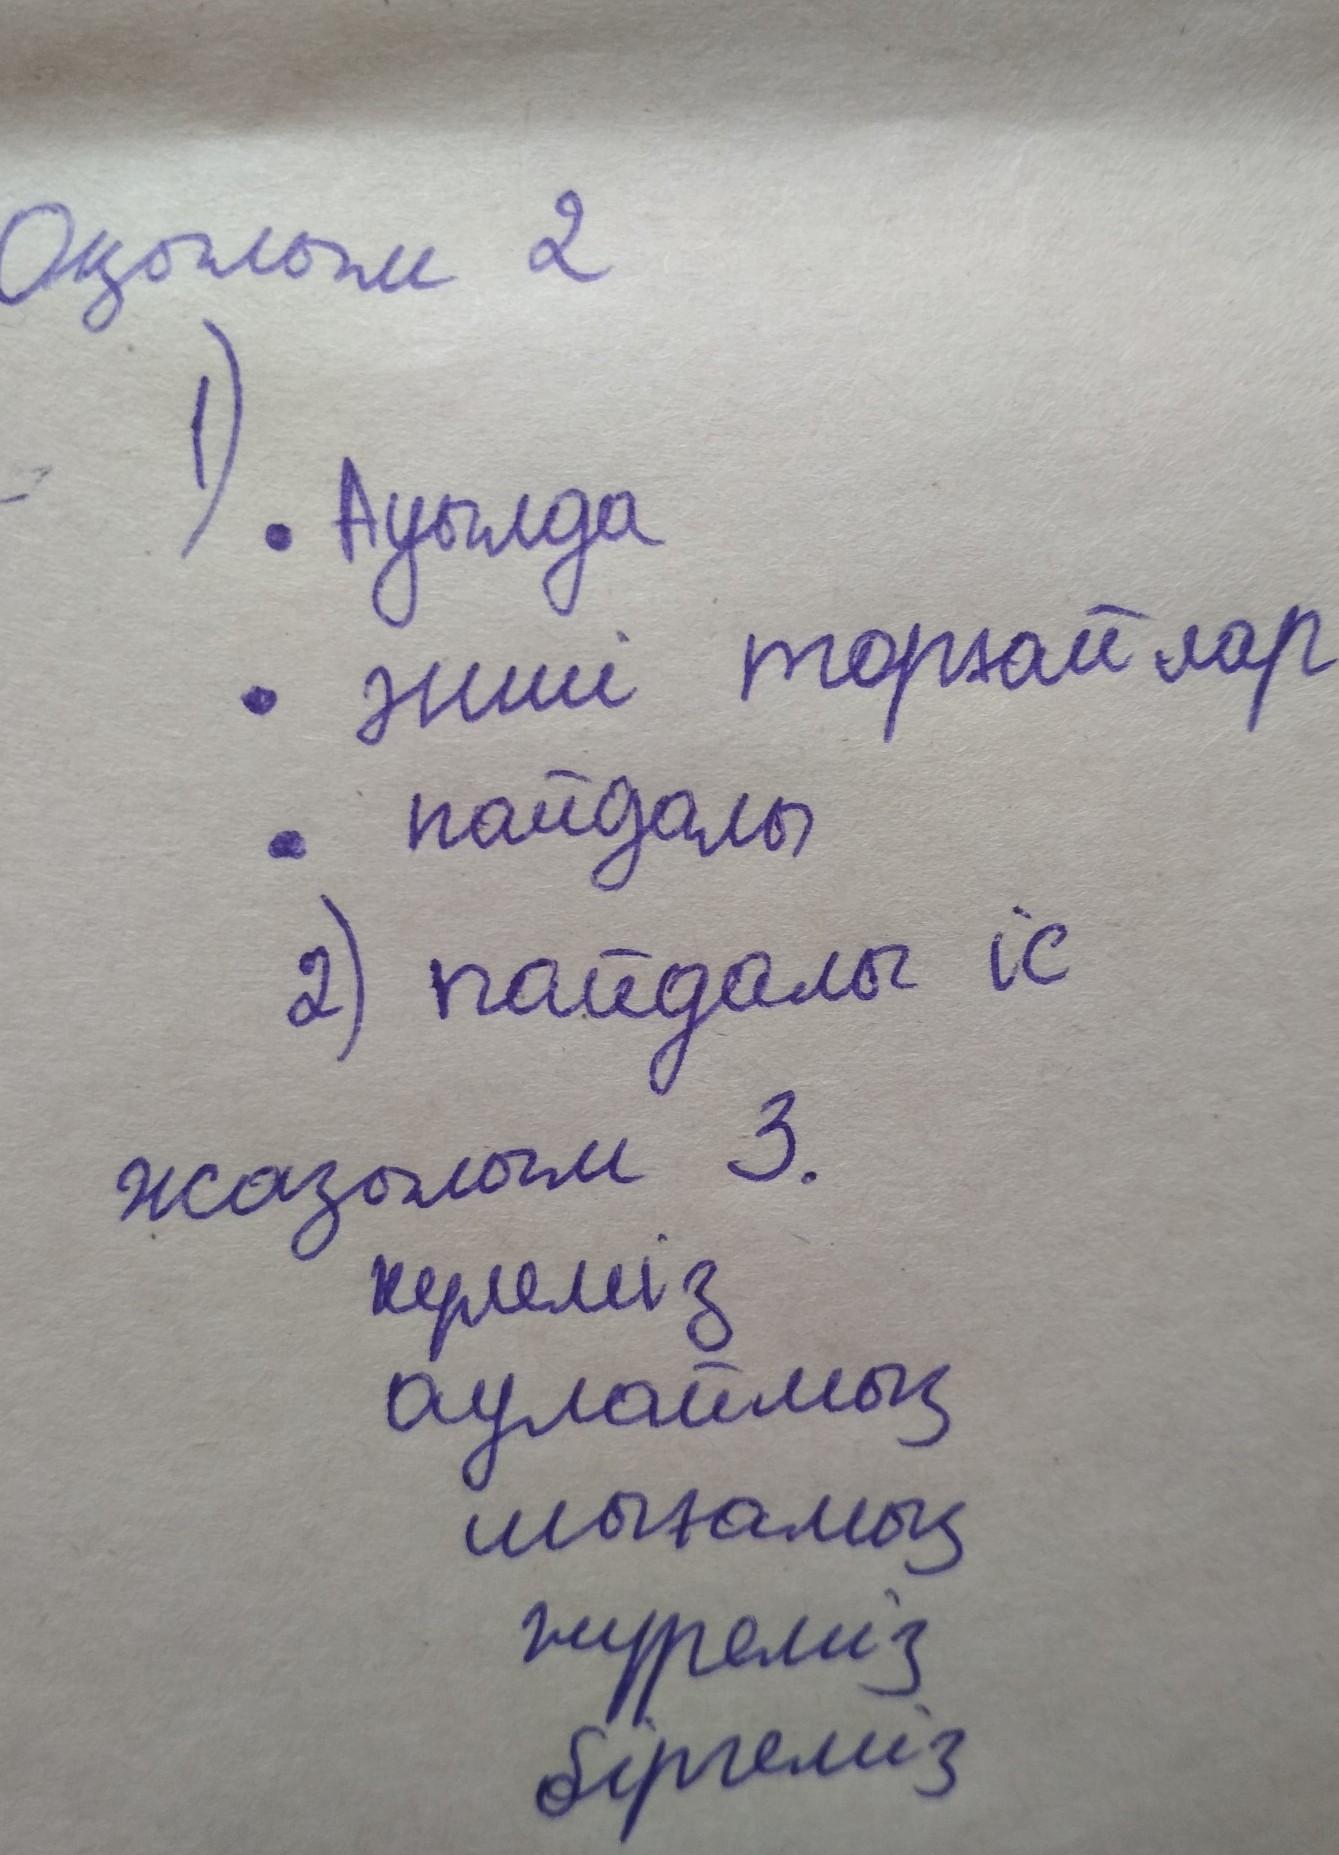 Оқылым 2
1)
• Ауылда
• әнші торғайлар
• пайдалы
2) пайдалы іс
жазылым 3.
күлеміз
аулаймыз
шығамыз
жүреміз
біргеміз